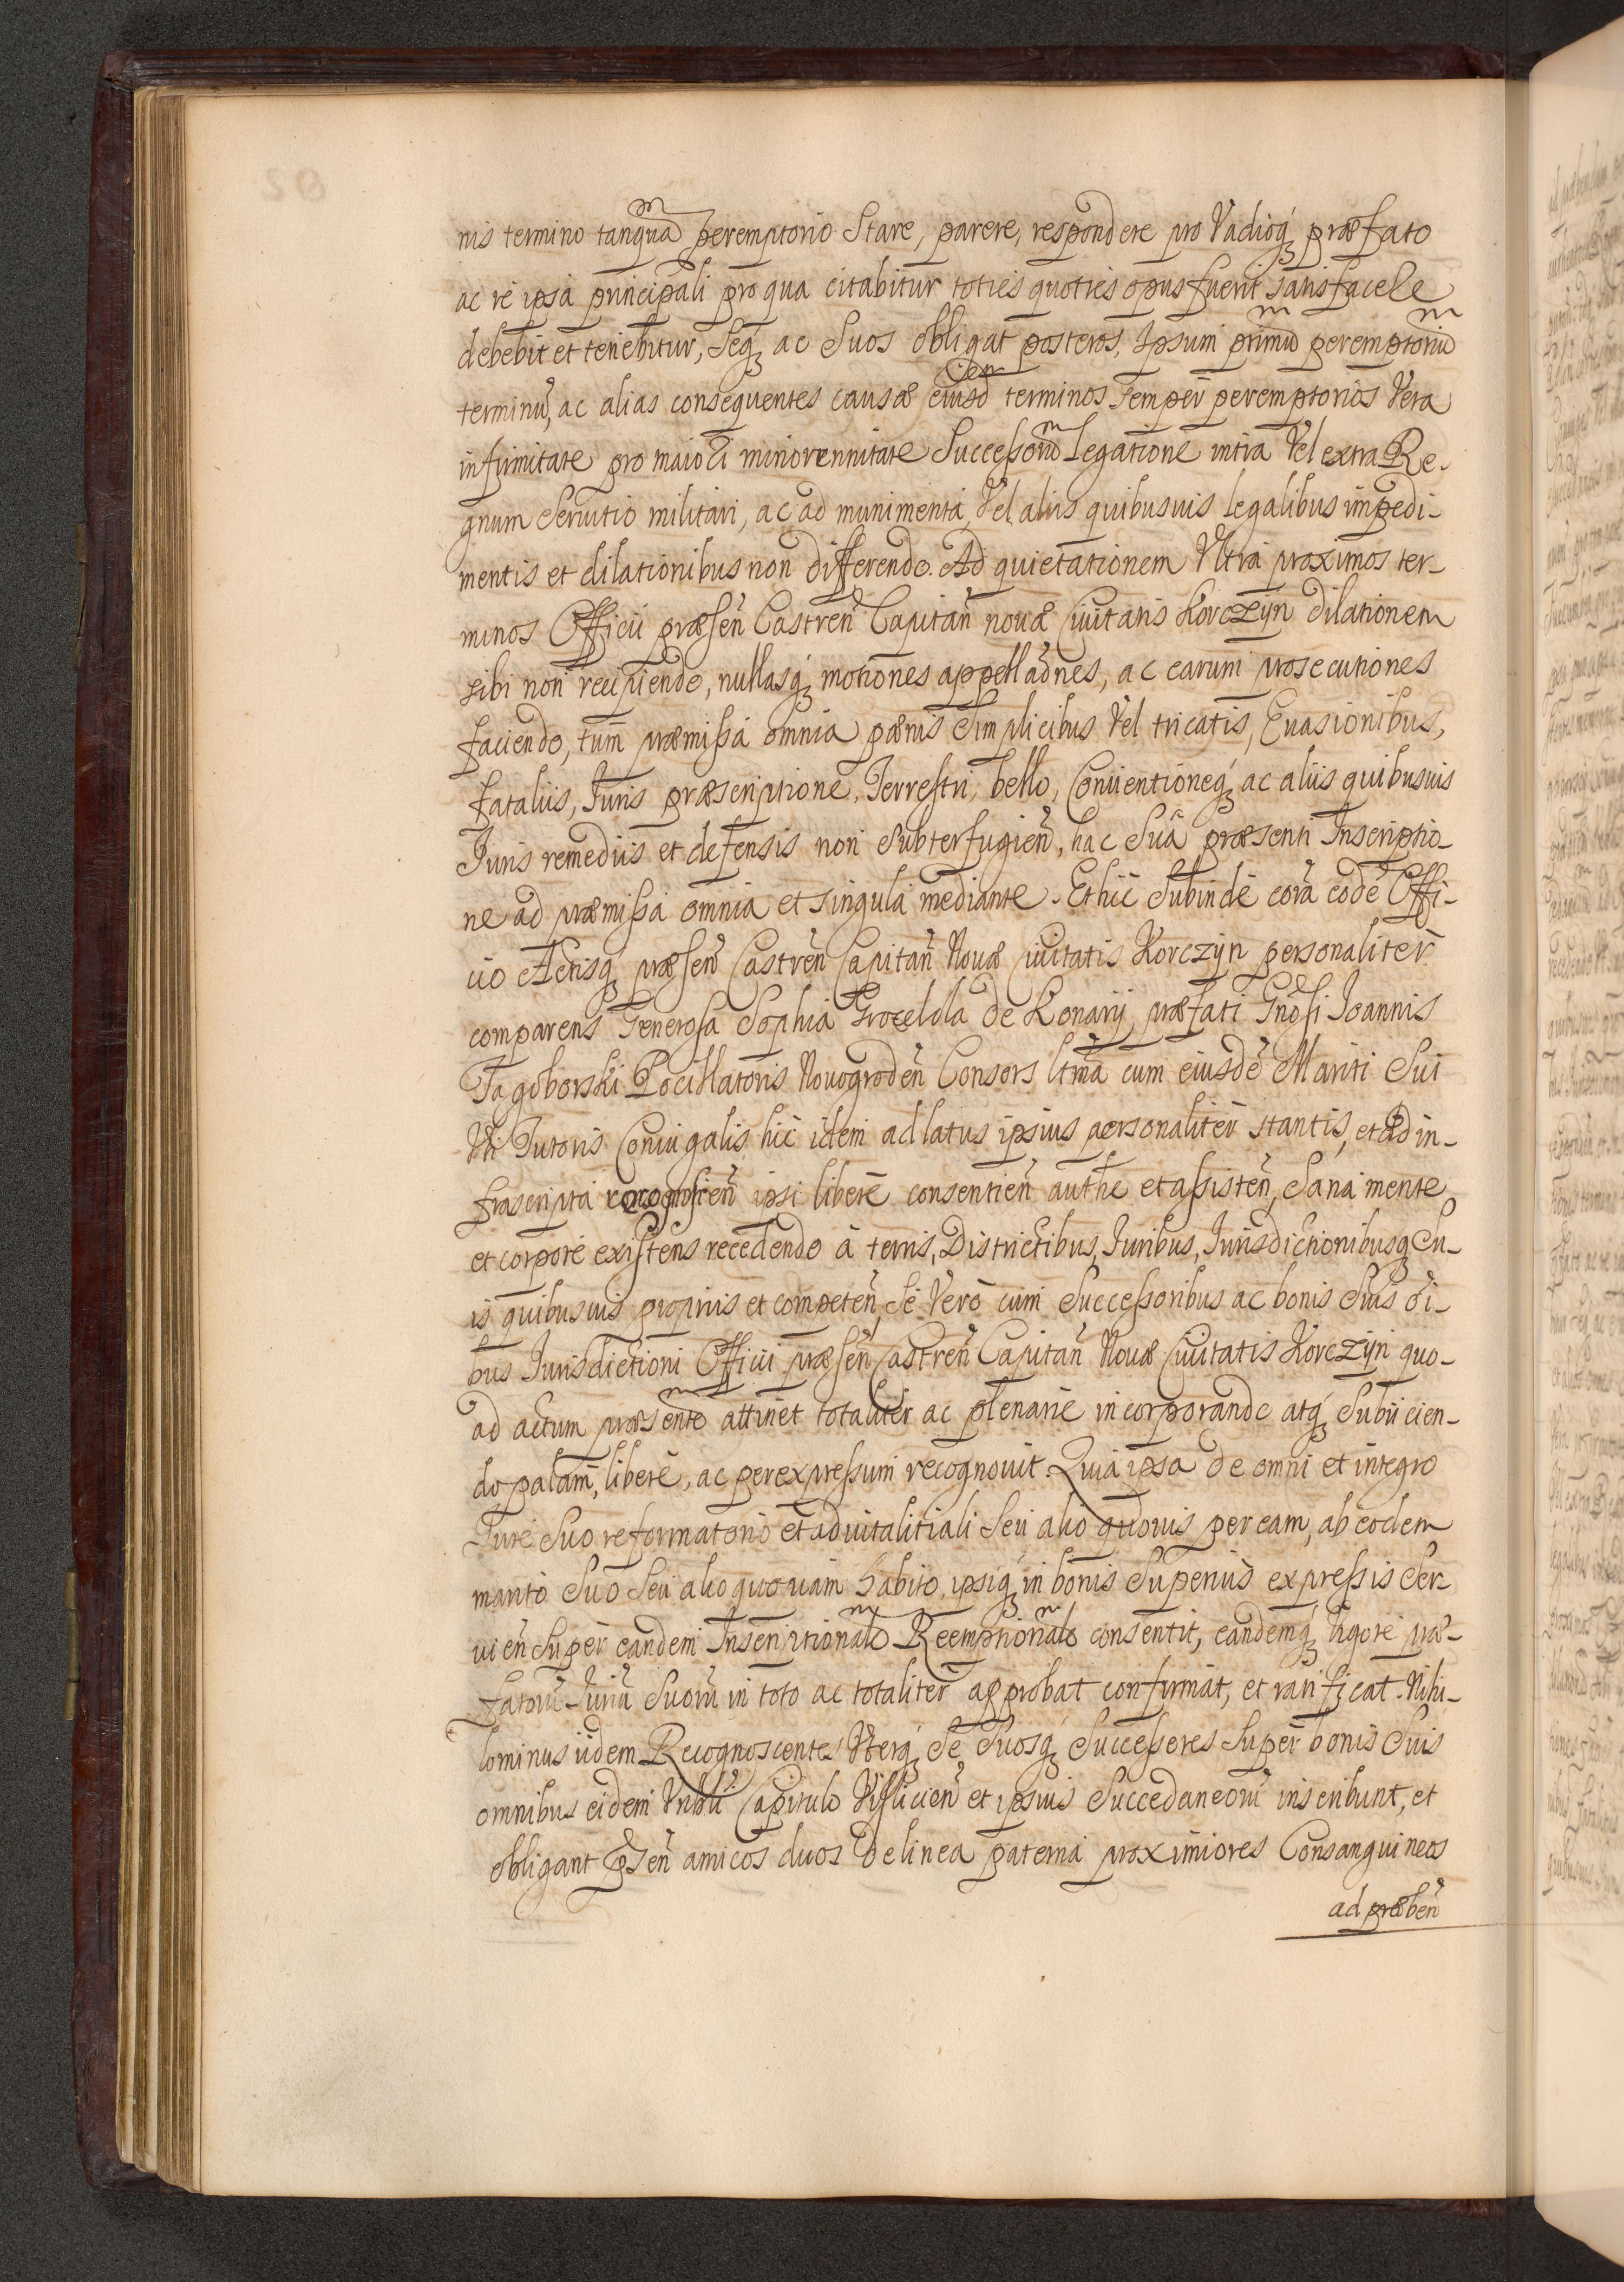 nis termino tanquã peremptorio Stare, parere, respondere pro Vadioq́ꝫ præfato
ac re ipsa principali pro qua citabitur toties quoties opus fuerit satisfacere
debebit et tenebitur, Seqꝫ ac Suos obligat posteros, Ipsum primũ peremptoriũ
terminũ, ac alias consequentes causæ eiusdem terminos semper peremptorios Vera
infirmitate pro maiori minorennitate Successorũ Legatione intra Vel extra Re-
gnum Seruitio militari, ac ad munimenta, Vel aliis quibusuis Legalibus impedi-
mentis et dilationibus non differendo. Ad quietationem Vltra proximos ter-
minos Officii præsen̄ Castren̄ Capitan̄ nouæ Ciuitatis Korczÿn dilationem
sibi non recipiendo, nullasq́ꝫ motiones appellãones, ac earum prosecutiones
faciendo, tum præmissa omnia pænis Simplicibus Vel tricatis, Euasionibus,
fataliis, Iuris præscriptione, Terrestri, bello, Conuentioneq́ꝫ ac aliis quibusuis
Iuris remediis et defensis non Subterfugien̄, hac Suâ præsenti Inscriptio-
ne ad præmissa omnia et singula mediante. Et hic Subinde corã eodẽ Offi-
cio Actisq́ꝫ præsen̄ Castren̄ Capitan̄ Nouæ Ciuitatis Korczÿn personaliter
comparens Generosa Sophia Grocelcla de Konarÿ, præfati Gñosi Ioannis
Jagoborski Pocillatoris Nouogroden̄ Consors ltĩma cum eiusdẽ Mariti Sui
Vti Tutoris Coniugalis hic idem ad latus ipsius personaliter stantis, et ad in-
frascripta recognoscien̄ ipsi libere consentien̄ auth̃e et assisten̄, Sana mente
et corpore existens recedendo à terris, Districtibus, Iuribus, Iurisdictionibusqꝫ Su-
is quibusuis propriis et competen̄, Se Vero cum Successoribus ac bonis Suis õi-
bus Iurisdictioni Officii præsen̄ Castren̄ Capitan̄ Nouæ Ciuitatis Korczÿn quo-
ad actum præsentẽ attinet totaliter ac plenarie incorporando atq́ꝫ Subiicien-
do palam, libere, ac per expressum recognouit. Quia ipsa de omni et integro
Iure Suo reformatorio et aduitalitiali Seu alio quouis per eam, ab eodem
marito Suo Seu alio quouam habito, ipsiq́ꝫ in bonis Superius expressis Ser-
uien̄ Super eandem Inscriptionalẽ Reemptionalẽ consentit, eandemq́ꝫ Vigore præ-
fatorũ Iuriũ Suorũ in toto ac totaliter approbat confirmat, et ratificat. Nihi-
lominus iidem Recognoscentes Vterq́ꝫ Se Suosq́ꝫ Successores Super bonis Suis
omnibus eidem Vnbli Capitulo Vislicien̄ et ipsius Succedaneorũ inscribunt, et
obligant p̃sen̄ amicos duos de linea paterna proximiores Consanguineos
ad præben̄